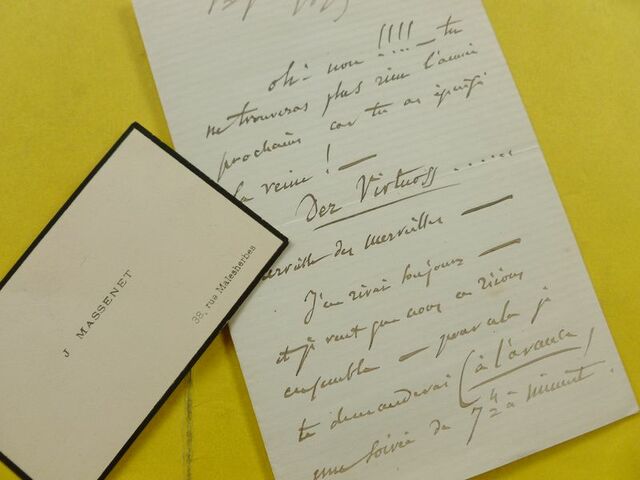 oh! non !!!! — tu
ne trouveras plus rien l'année
prochaine car tu as épuisé
la veine ! —
Der Virtuos .....
merveille des merveilles —
J'en rirai toujours —
et je veux que nous en riions
ensemble — pour cela je
te demanderai (à l'avance)
une soirée de 7h ½ à minuit.
J MASSENET
38, rue Malesherbes